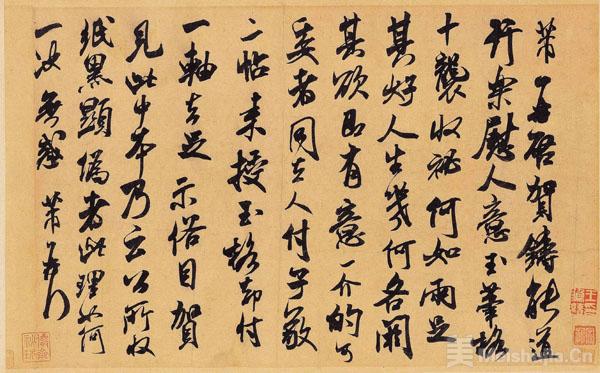 芾再啓賀鑄能道
行樂慰人意玉筆格
十襲收祕何如兩足
其好人生幾何各閼
其欲即有意一介的可
委者同去人付子敬
二帖來授玉格却付
一軸去足示俗目賀
見此中本乃云公所收
紙黑顯偽者此理如何
一決無惑芾頓首
美 Meishujia.Cn